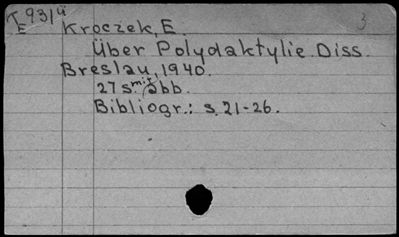 T 931 4
E
Kroczek, E. 3
Über Polydaktylie. Diss.
Breslau, 1940.
27 s. mit abb.
Bibliogr.: s. 21-26.